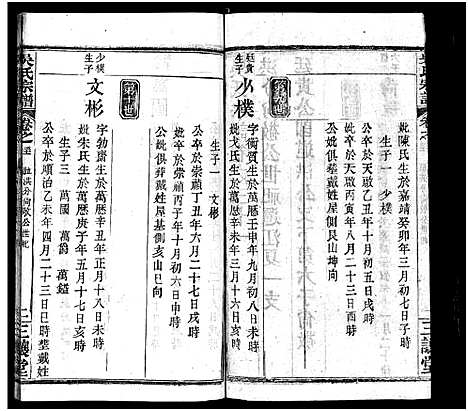 妣陳氏生於嘉靖癸卯年三月初七日子時
生子一 少樸
公卒於天啟乙丑年十月初五日戌時
妣卒於天啟丙寅年八月二十日亥時
公妣俱塟戴姓屋側艮山坤向
第九世
廷貴生子
少樸
字衡質生於萬曆壬申年九月初八日寅時
妣戈氏生於萬曆辛未年三月十六日亥時
生子一 文彬
公卒於崇禎丁丑年六月二十七日戌時
妣卒於崇禎丙子年十月初六日申時
公妣俱葬戴姓屋基側亥山巳向
第十世
少樸生子
文彬
字勃齋生於萬曆辛丑年正月十八日未時
妣朱氏生於萬曆庚子年五月十七日亥時
生子三 萬國 萬爵 萬鎰
公卒於順治乙未年四月二十三日塟戴姓
吳氏宗譜
三讓堂